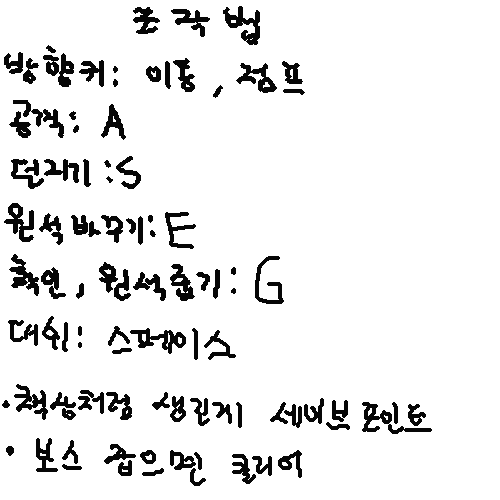 조작법
방향키: 이동, 점프
공격: A
던지기:S
원석바꾸기:E
확인, 원석줍기: G
대쉬: 스페이스
·책상처럼 생긴게 세이브포인트
·보스 잡으면 클리어